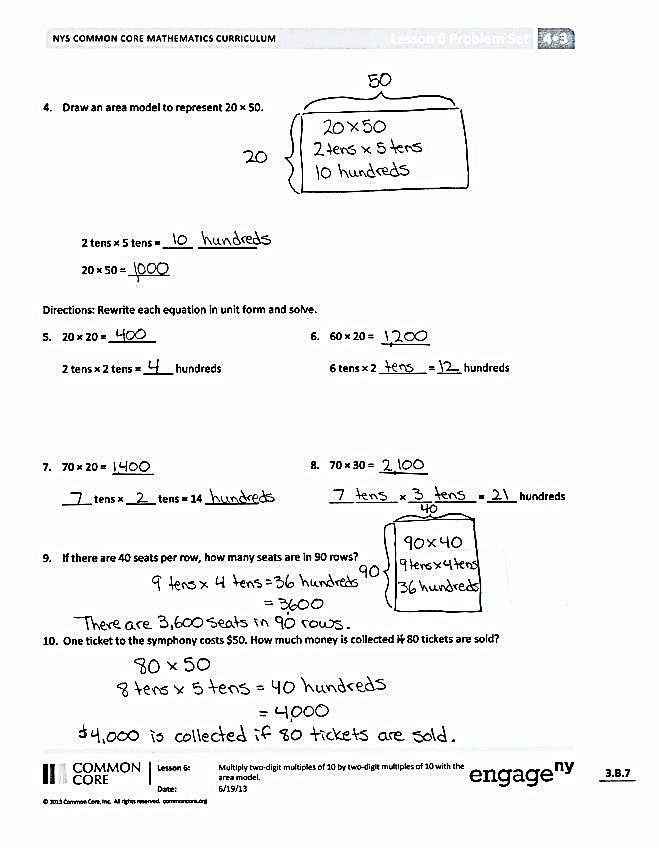 NYS COMMON CORE MATHEMATICS CURRICULUM Lesson 6 Problem Set 4•3
50
4. Draw an area model to represent 20 × 50.
20
20 × 50
2 tens × 5 tens
10 hundreds
2 tens × 5 tens = 10 hundreds
20 × 50 = 1,000
Directions: Rewrite each equation in unit form and solve.
5. 20 × 20 = 400
2 tens × 2 tens = 4 hundreds
6. 60 × 20 = 1,200
6 tens × 2 tens = 12 hundreds
7. 70 × 20 = 1400
7 tens × 2 tens = 14 hundreds
8. 70 × 30 = 2,100
7 tens × 3 tens = 21 hundreds
9. If there are 40 seats per row, how many seats are in 90 rows?
9 tens × 4 tens = 36 hundreds
= 3600
There are 3,600 seats in 90 rows.
40
90
90 × 40
9 tens × 4 tens
36 hundreds
10. One ticket to the symphony costs $50. How much money is collected if 80 tickets are sold?
80 × 50
8 tens × 5 tens = 40 hundreds
= 4,000
$4,000 is collected if 80 tickets are sold.
COMMON CORE
Lesson 6: Multiply two-digit multiples of 10 by two-digit multiples of 10 with the
area model.
Date: 6/19/13
engage ny
3.B.7
© 2013 Common Core, Inc. All rights reserved. commoncore.org